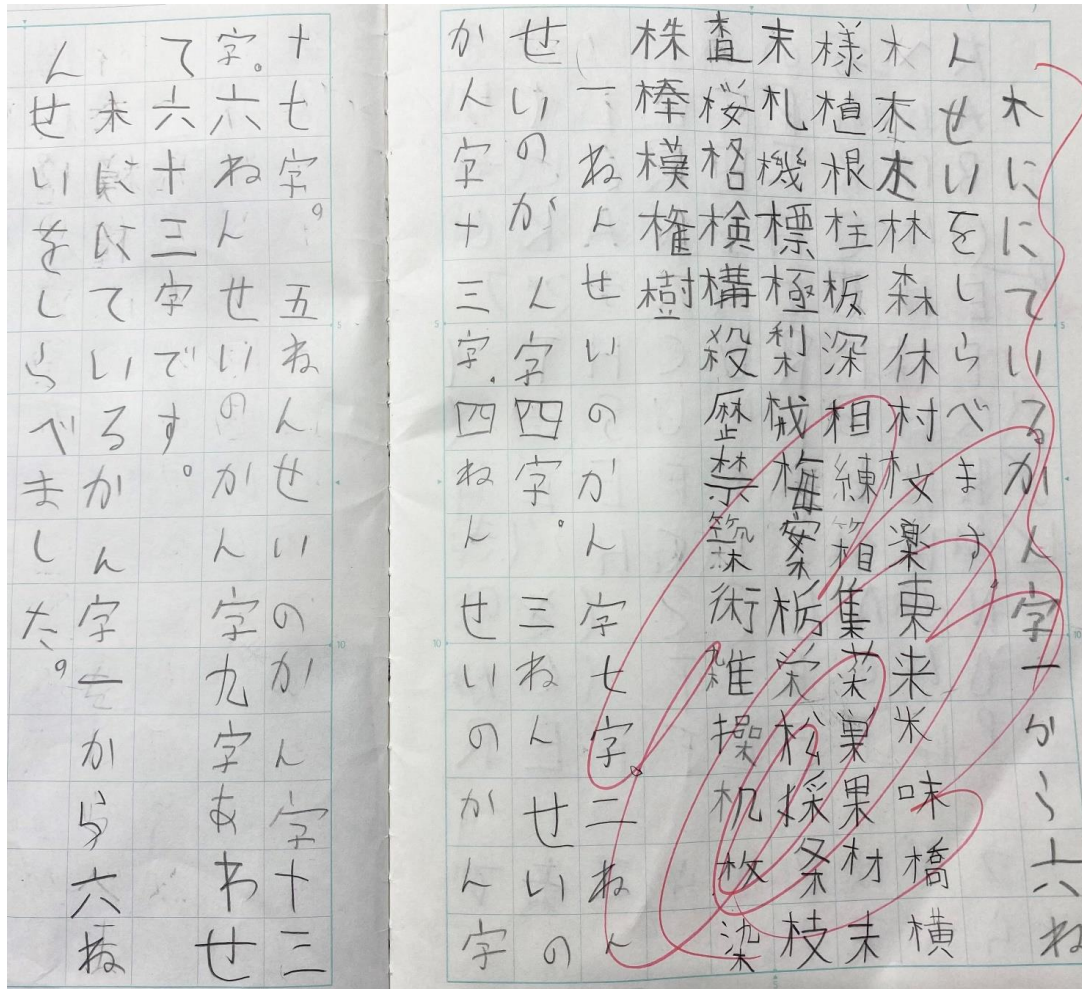 木ににているかん字一から六ね
んせいをしらべます
木木本林森休村校楽東来米味橋横
様植根柱板深相練箱集菜巣果材未
末札機標極梨械梅案栃栄松採条枝
査桜格検構殺歴禁築術雑操机枚染
株棒模権樹
一ねんせいのかん字七字。二ねん
せいのかん字四字。三ねんせいの
かん字十三字。四ねんせいのかん字
十七字。五ねんせいのかん字十三
字。六ねんせいのかん字九字あわせ
て六十三字です。
ているかん字一から六ね
んせいをしらべました。